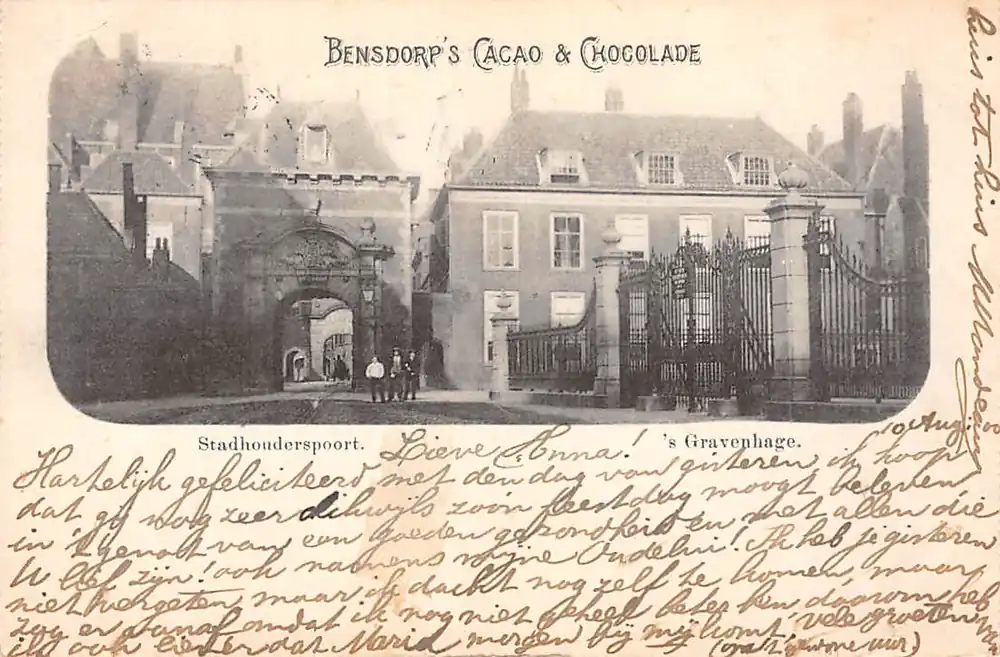 BENSDORP'S CACAO & CHOCOLADE
Stadhouderspoort.
's Gravenhage.
10 Aug. 00
Lieve Anna!
Hartelijk gefeliciteerd met den dag van gisteren ik hoop
dat gij nog zeer dikwijls zoo'n feestdag moogt beleven
in 't genot van een goeden gezondheid en met allen die
U lief zijn! ook namens mijne Oudelui! Ik heb je gisteren
niet vergeten, maar of dacht nog zelf te komen, maar
zag er vanaf omdat ik nog niet geheel beter ben, daarom heb
ik ook liever dat Marie morgen bij mij komt (om 't gewone uur)
vele groeten
huis tot huis